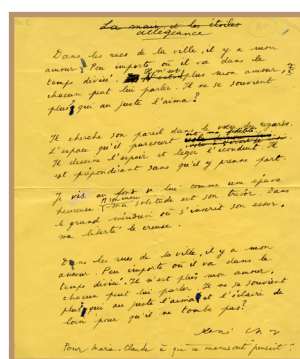 La main, et les étoiles
allégeance
Dans les rues de la ville, il y a mon
amour. Peu importe où il va dans le
temps divisé. Il n'est plus mon amour,
chacun peut lui parler. Il ne se souvient
plus; qui au juste l'aima?
Il cherche son pareil dans le voeu des regards.
L'espace qu'il parcourt
Il dessine l'espoir et léger l'éconduit. Il
est prépondérant sans qu'il y prenne part.
Je vis au fond de lui comme une épave
heureuse. A son insu, ma solitude est son trésor. Dans
le grand méridien où s'inscrit son essor,
ma liberté le creuse.
Dans les rues de la ville, il y a mon
amour. Peu importe où il va dans le
temps divisé. Il n'est plus mon amour,
chacun peut lui parler. Il ne se souvient
plus; qui au juste l'aima et l'éclaire de
loin pour qu'il ne tombe pas?
René Char
Pour Marie-Claude à qui ce manuscrit